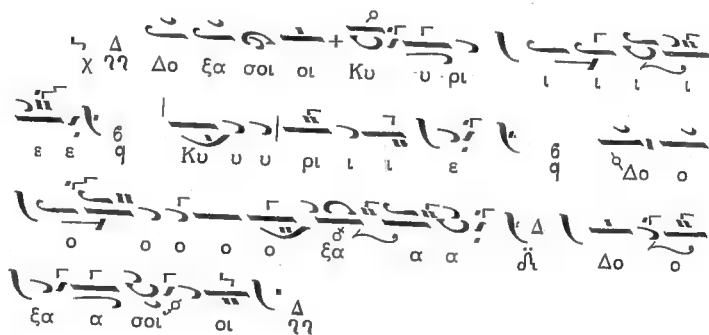 χ Δ γγ Δο ξα σοι οι Κυ υ ρι ι ι ι ι
ε ε β q Κυ υ υ ρι ι ι ε β q Δο ο
ο ο ο ο ο ξα α α Δ Δο ο
ξα α σοι οι Δ γγ